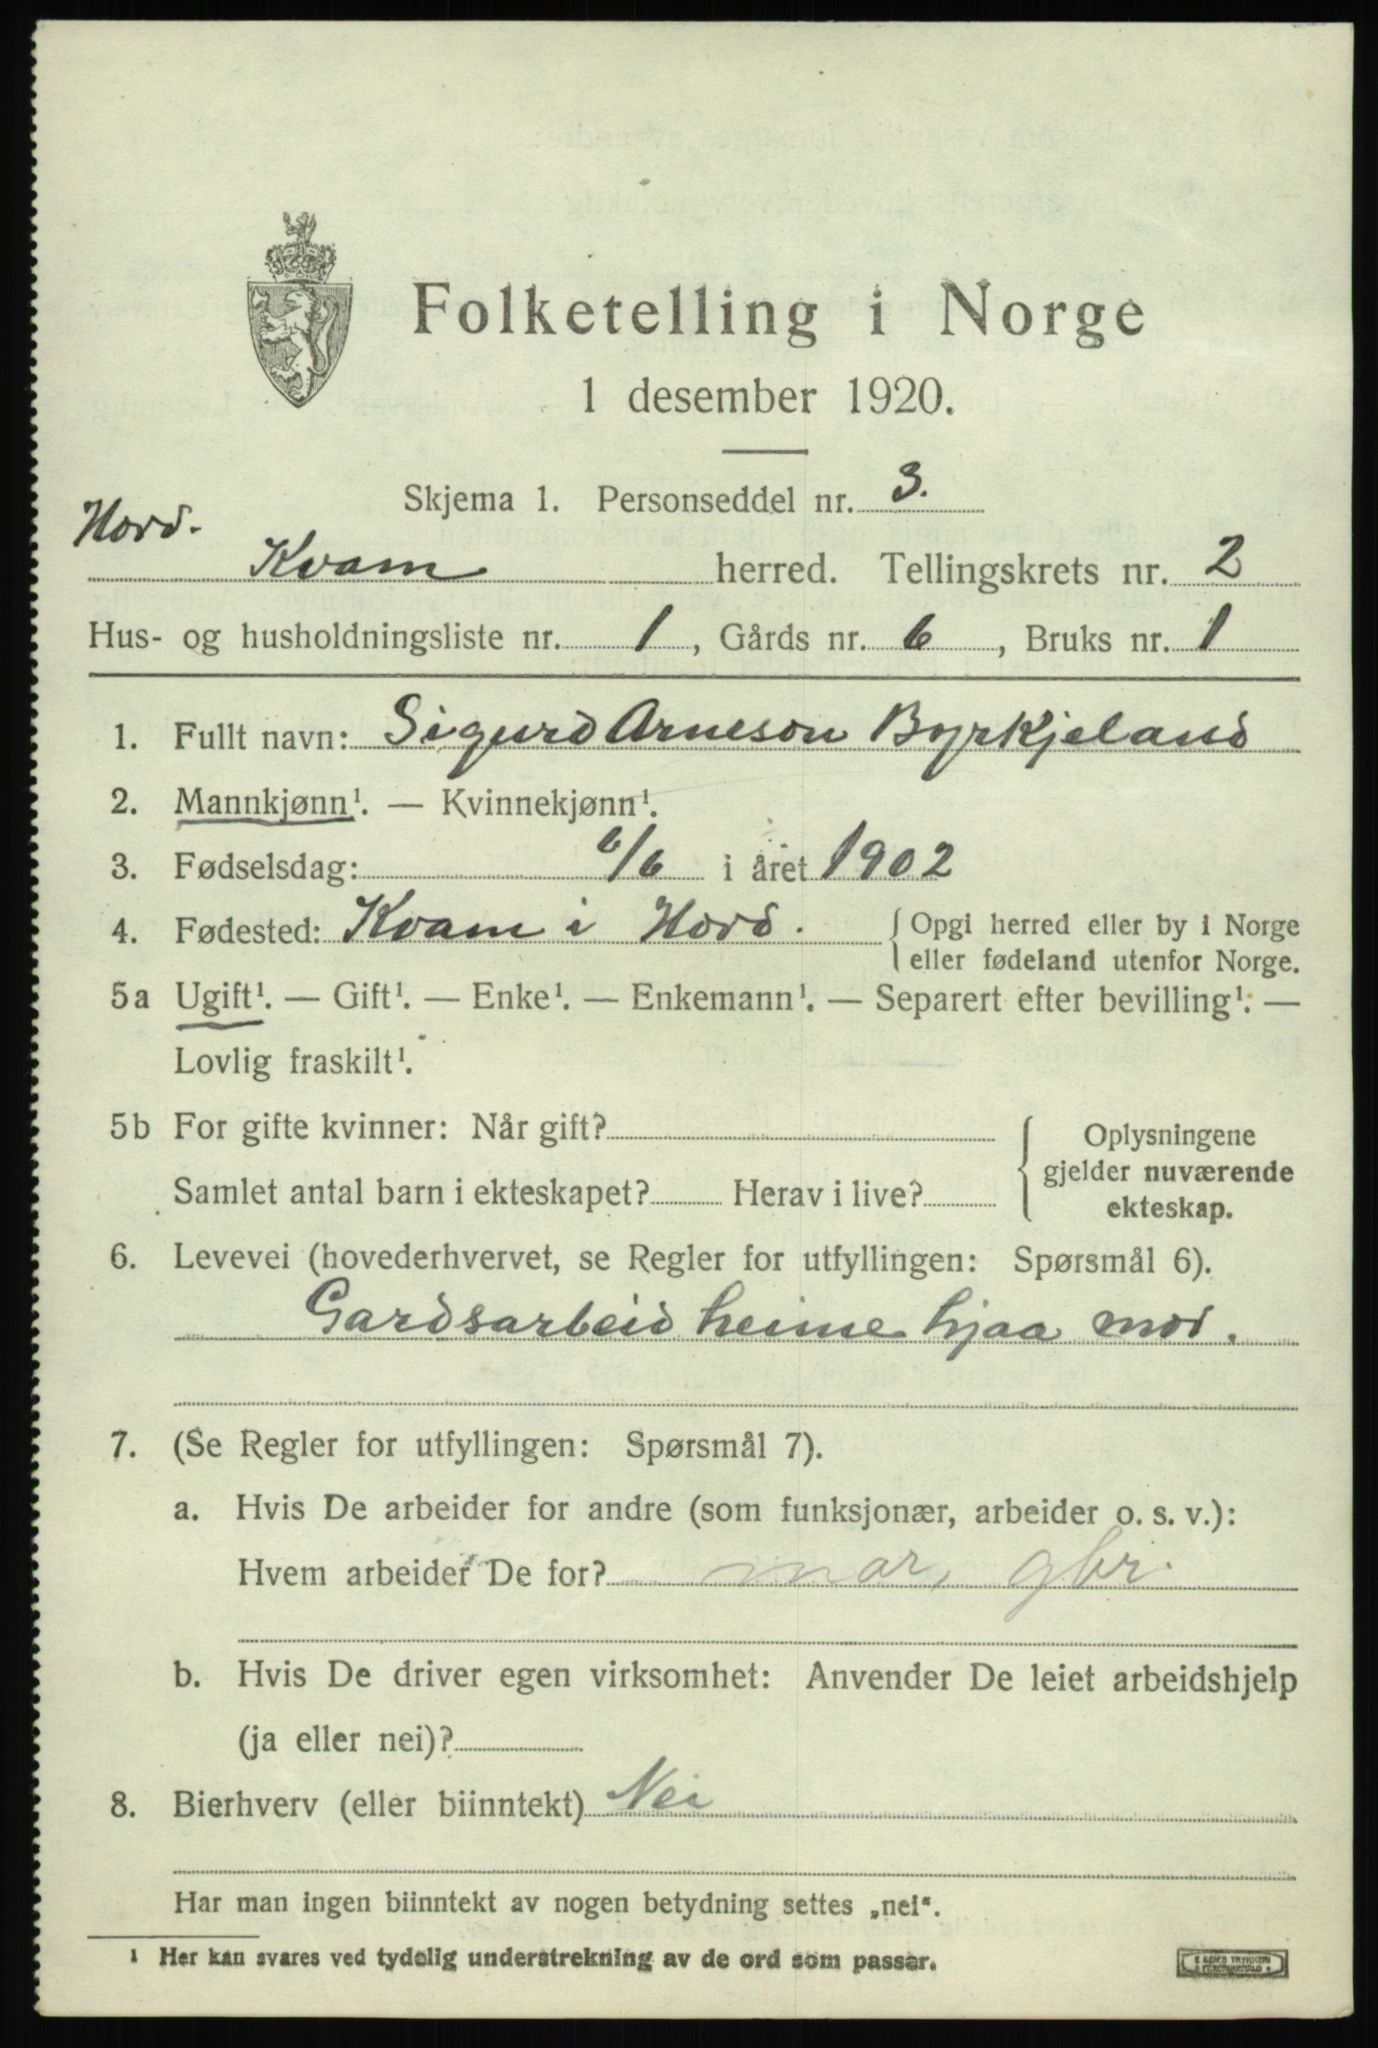 Folketelling i Norge
1 desember 1920.
Skjema 1. Personseddel nr. 3.
Hord.
Kvam herred. Tellingskrets nr. 2
Hus- og husholdningsliste nr. 1, Gårds nr. 6, Bruks nr. 1
1. Fullt navn: Sigurd Arneson Byrkjeland
2. Mannkjønn¹. — Kvinnekjønn¹.
3. Fødselsdag: 6/6 i året 1902
4. Fødested: Kvam i Hord. { Opgi herred eller by i Norge
eller fødeland utenfor Norge.
5a Ugift¹. — Gift¹. — Enke¹. — Enkemann¹. — Separert efter bevilling¹. —
Lovlig fraskilt¹.
5b For gifte kvinner: Når gift?
Samlet antal barn i ekteskapet? Herav i live?
{ Oplysningene
gjelder nuværende
ekteskap.
6. Levevei (hovederhvervet, se Regler for utfyllingen: Spørsmål 6).
Gardsarbeid heime hjaa mor.
7. (Se Regler for utfyllingen: Spørsmål 7).
a. Hvis De arbeider for andre (som funksjonær, arbeider o. s. v.):
Hvem arbeider De for? mor, gbr.
b. Hvis De driver egen virksomhet: Anvender De leiet arbeidshjelp
(ja eller nei)?
8. Bierhverv (eller biinntekt) Nei
Har man ingen biinntekt av nogen betydning settes „nei“.
¹ Her kan svares ved tydelig understrekning av de ord som passer.